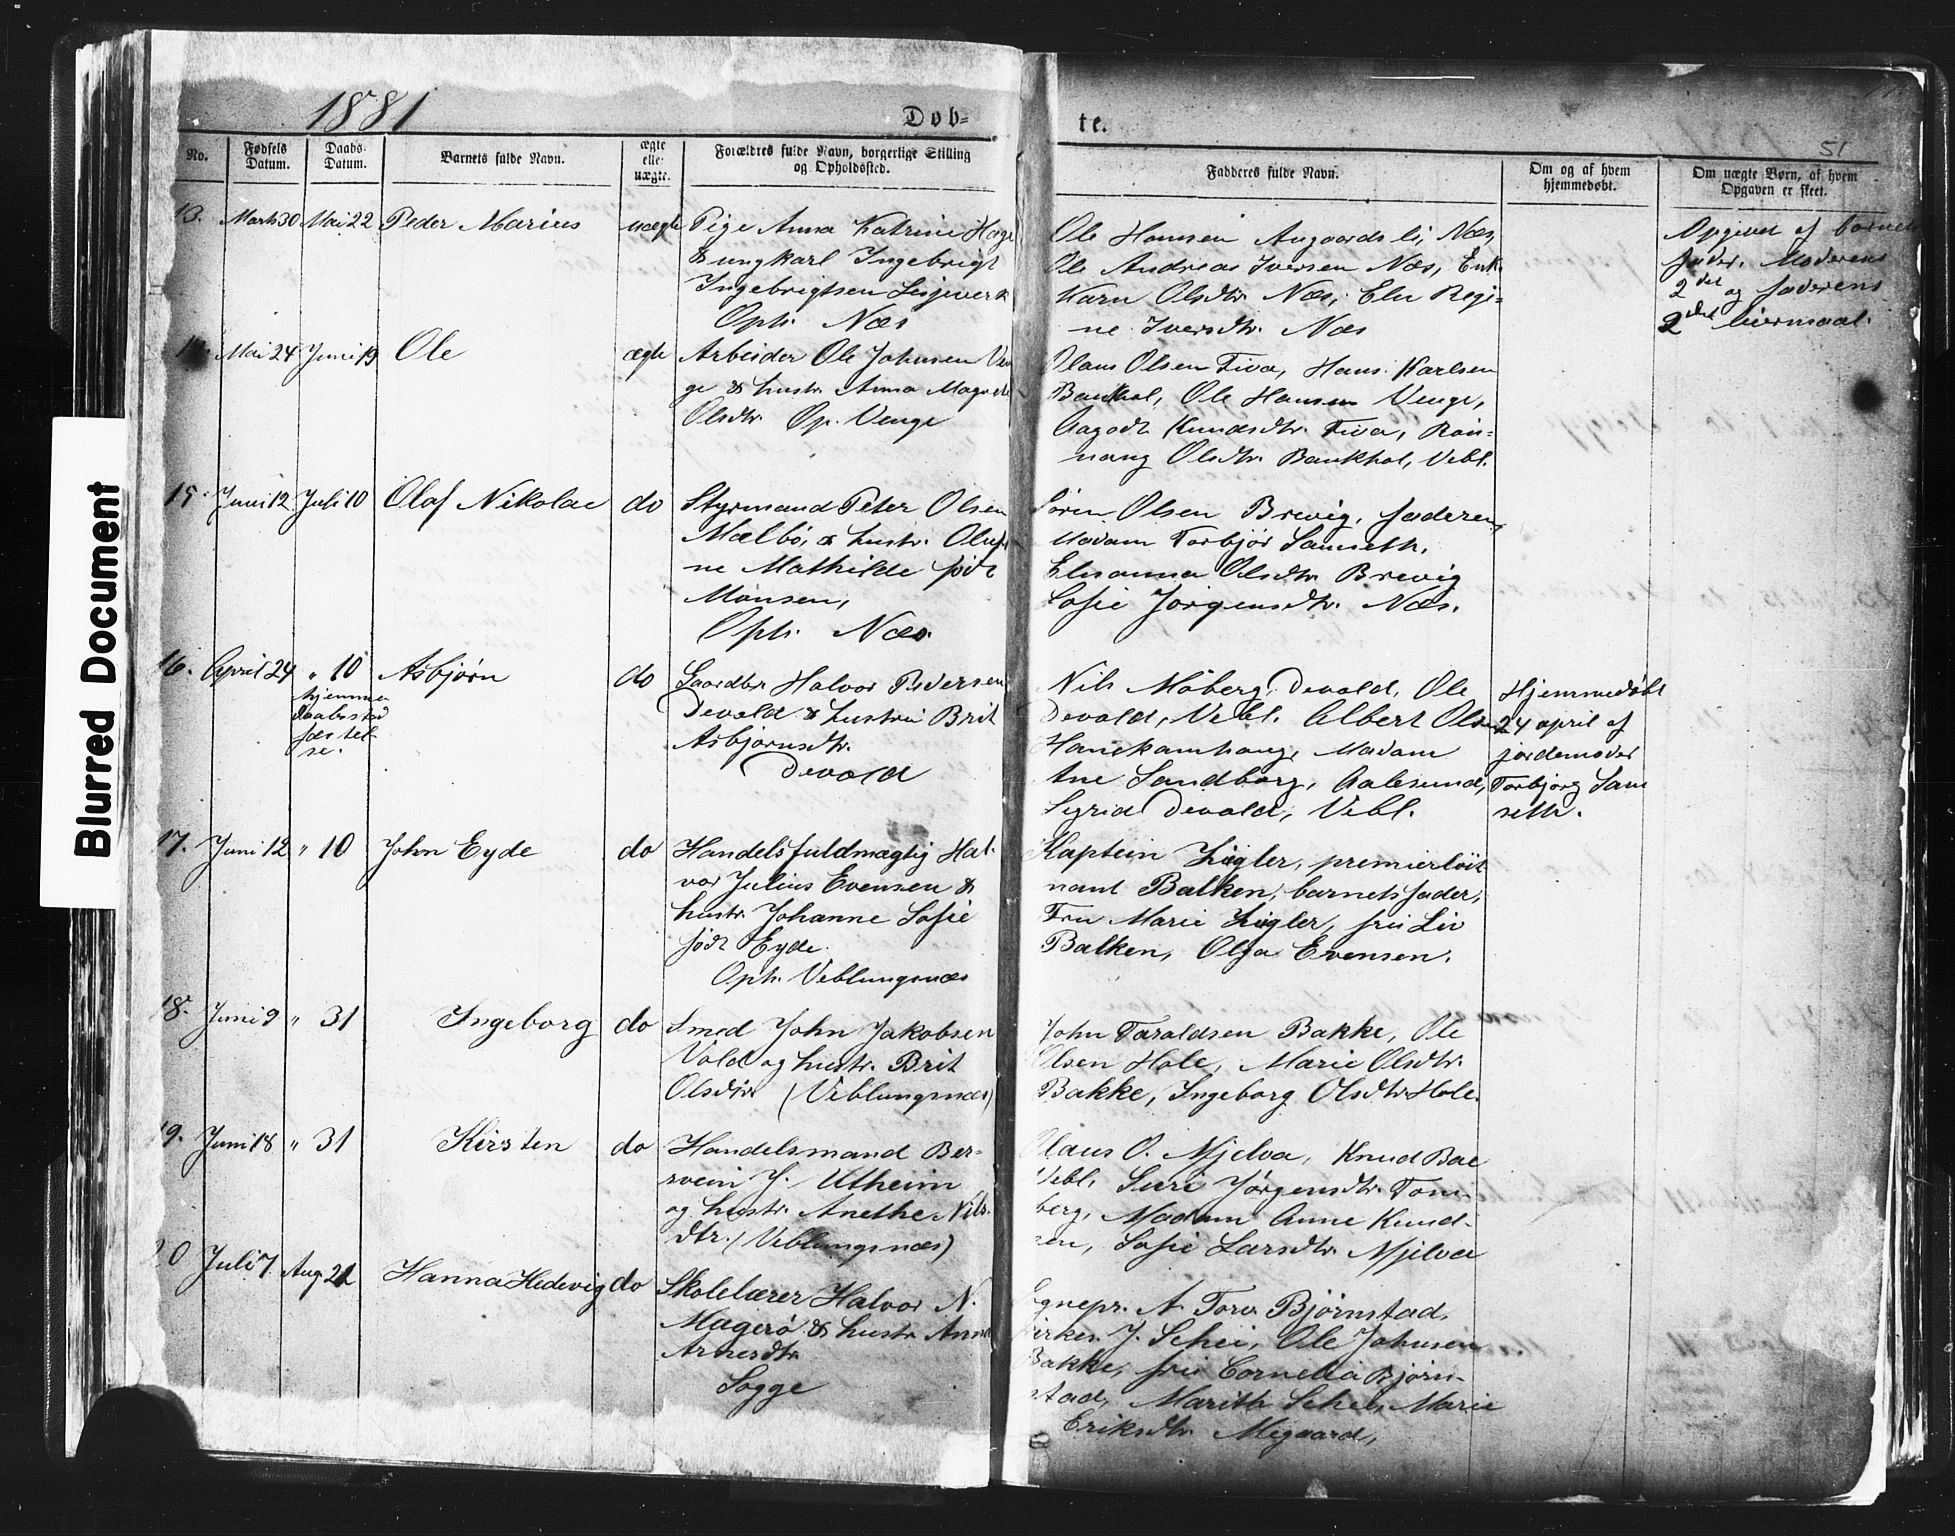 1881
Døb=
te.
51
No.
Fødsels Datum.
Daabs-Datum.
Barnets fulde Navn.
ægte eller uægte.
Forældres fulde Navn, borgerlige Stilling og Opholdssted.
Fadderes fulde Navn.
Om og af hvem hjemmedøbt.
Om uægte Børn, af hvem Opgaven er skeet.
13. Marts 30 Mai 22 Peder Marius uægte Pige Anna Katrine
& ungkarl Ingebrigt
Ingebrigtsen Lesjeverk
Oph. Næs
Ole Hansen Augaardsli, Næs,
Ole Andreas Iversen Næs, Enk.
Karn Olsdtr. Næs, Elen Regi=
ne Iversdtr. Næs
Opgivet af barnets
fader. Moderens
2det og faderens
2det leiermaal.
Mai 24 Juni 19 Ole ægte Arbeider Ole Johnsen Ven
ge & hustr. Anna Magrete
Olsdtr. Op. Venge
Olaus Olsen Fiva, Hans Karlsen
Baukhol, Ole Hansen Venge,
Aagodt Knudsdtr. Fiva, Røn=
naug Olsdtr. Baukhol, Vebl.
15. Juni 12 Juli 10 Olaf Nikolai do Styrmand Peter Olsen
Mælbö, & hustr. Oluf
ne Mathilde født
Monsen,
Oph. Næs.
Sören Olsen Brevig, faderen,
Madam Torbjør Samseth,
Elen Anna Olsdtr. Brevig
Sofie Jørgensdtr. Næs.
16. April 24 " 10 Asbjørn do Gaardbr. Halvor Pedersen
hjemme
daabsstad
fæstel-
se.
Devold & hustru Brit
Asbjørnsdtr.
Devold
Nils Möberg, Devold, Ole
Devold, Vebl. Albert Olsen
Hanekamhaug, Madam
Ane Sandborg, Aalesund,
Sigrid Devold, Vebl.
Hjemmedøbt
24 april af
jordemoder
Torbjørg Sam
seth.
17. Juni 12 " 10 John Eyde do Handelsfuldmægtig Hal-
vor Julius Evensen &
hustr. Johanne Sofie
født Eyde.
Oph. Veblungsnæs
Kaptein Zigler, premierlöit
nant Balken, barnets fader,
Fru Marie Zigler, frk Liv
Balken, Olga Evensen.
18. Juni 9 " 31 Ingeborg do Smed John Jakobsen
Vold og hustr. Brit
Olsdtr. (Veblungsnæs)
John Taraldsen Bakke, Ole
Olsen Hole, Marie Olsdtr.
Bakke, Ingeborg Olsdtr. Hole.
19. Juni 18 " 31 Kirsten do Handelsmand Ber-
svein J. Utheim
og hustr. Anethe Nils
dtr. (Veblungsnæs)
Olaus O. Mjelva, Knud Bae
Vebl, Siri Jørgensdtr. Tom-
berg, Madam Anne Knud-
sen, Sofie Larsdtr. Mjelva
20 Juli 7 Aug 21 Hanna Hedevig do Skolelærer Halvor N.
Magerö & hustr. Anne
Arnesdtr.
Sogge
Sognepr. N. Torv. Bjørnstad,
Kirkes. J. Schei, Ole Johnsen
Bakke, fru Cornelia Bjørn-
stad, Marith Schei, Marie
Eriksdtr. Migaard,
Blurred Document